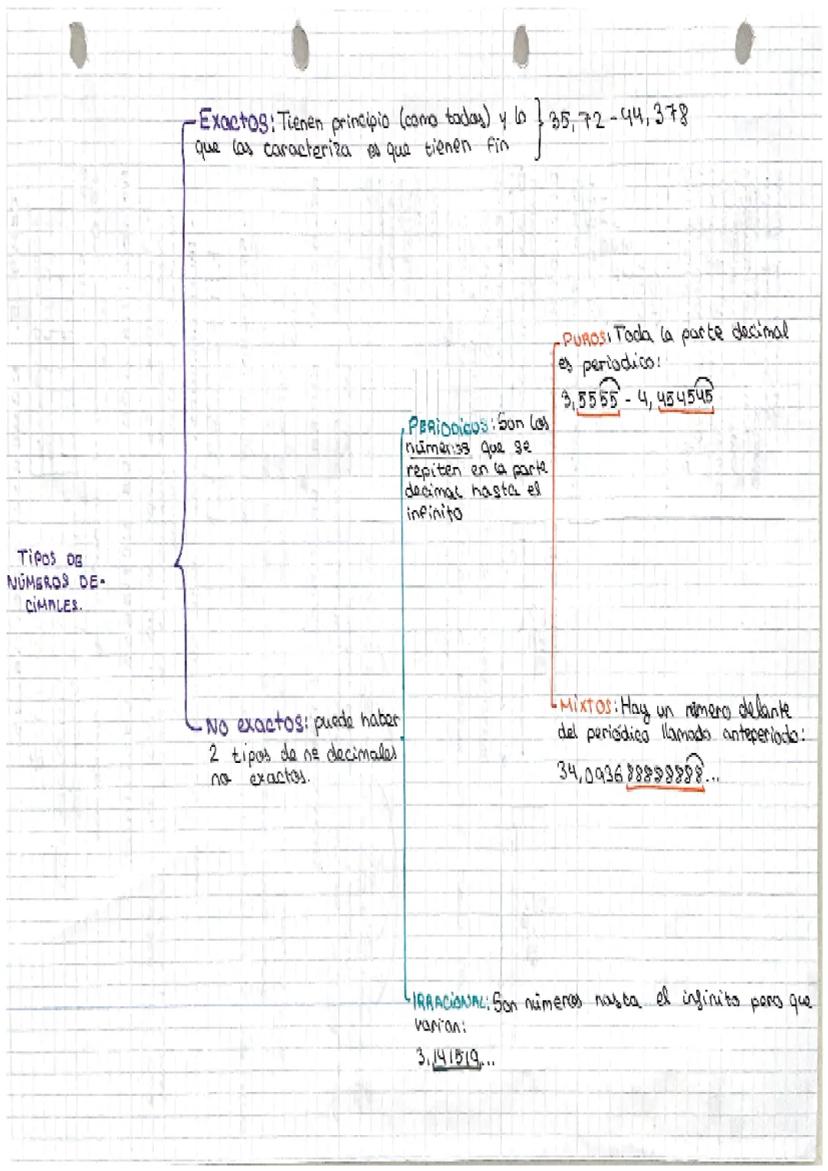 Exactos: Tienen principio (como todas) y lo
que las caracteriza es que tienen fin
35,72 - 44,378
PUROS: Toda la parte decimal
es periodico:
3,5555 - 4,454545
PERIODICOS: Son los
números que se
repiten en la parte
decimal hasta el
infinito
TIPOS DE
NÚMEROS DE-
CIMALES.
No exactos: puede haber
2 tipos de nº decimales
no exactos.
MIXTOS: Hay un número delante
del periódico llamado anteperiodo:
34,093688888888...
IRRACIONAL: Son números hasta el infinito pero que
varian:
3,141519...